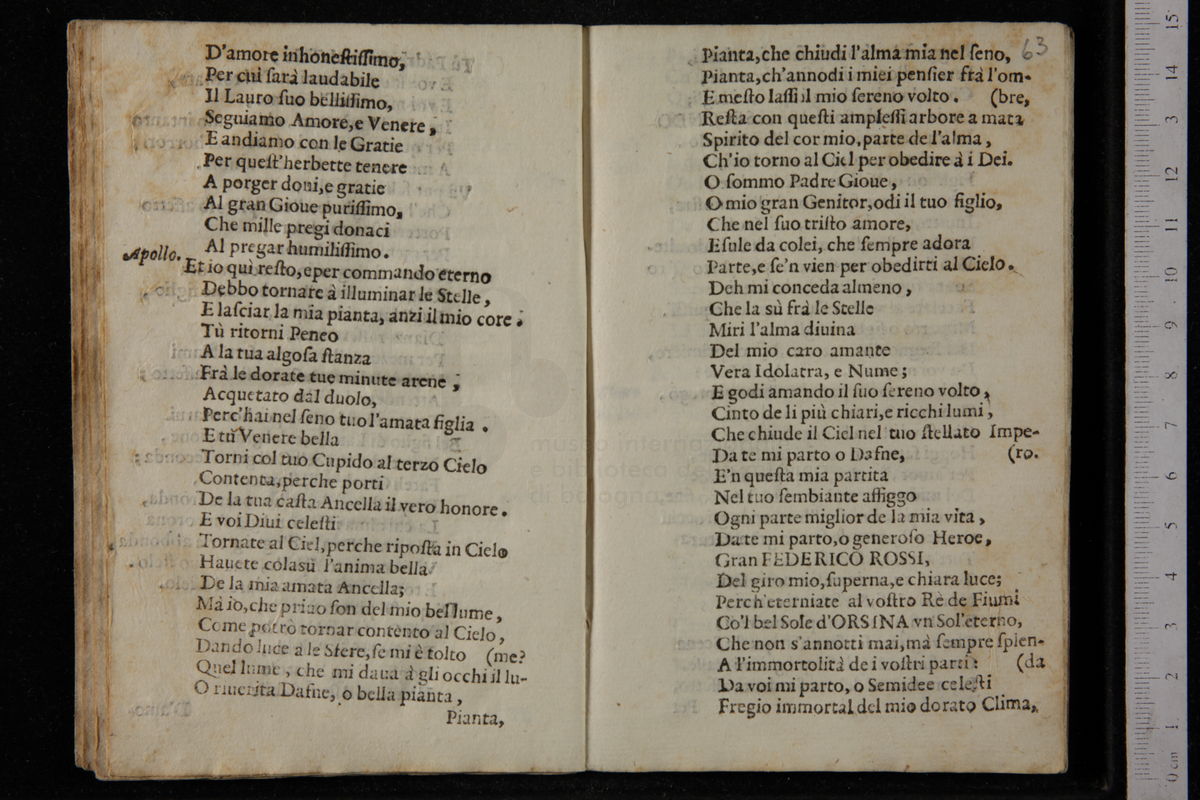 D'amore inhonestissimo,
Per cui sarà laudabile
Il Lauro suo bellissimo,
Seguiamo Amore, e Venere,
E andiamo con le Gratie
Per quest'herbette tenere
A porger doni, e gratie
Al gran Gioue purissimo,
Che mille pregi donaci
Al pregar humilissimo.
Apollo. Et io quì resto, e per commando eterno
Debbo tornare à illuminar le Stelle,
E lasciar la mia pianta, anzi il mio core.
Tù ritorni Peneo
A la tua algosa stanza
Frà le dorate tue minute arene;
Acquetato dal duolo,
Perc'hai nel seno tuo l'amata figlia.
E tù Venere bella
Torni col tuo Cupido al terzo Cielo
Contenta, perche porti
De la tua casta Ancella il vero honore.
E voi Diui celesti
Tornate al Ciel, perche riposta in Cielo
Hauete colasù l'anima bella
De la mia amata Ancella;
Mà io, che priuo son del mio bel lume,
Come potrò tornar contento al Cielo,
Dando luce a le Sfere, se mi è tolto (me?
Quel lume, che mi daua à gli occhi il lu-
O riuerita Dafne, o bella pianta,
Pianta,
63
Pianta, che chiudi l'alma mia nel seno,
Pianta, ch'annodi i miei pensier frà l'om-
E mesto lassi il mio sereno volto. (bre,
Resta con questi amplessi arbore amata
Spirito del cor mio, parte de l'alma,
Ch'io torno al Ciel per obedire à i Dei.
O sommo Padre Gioue,
O mio gran Genitor, odi il tuo figlio,
Che nel suo tristo amore,
Esule da colei, che sempre adora
Parte, e se'n vien per obedirti al Cielo.
Deh mi conceda almeno,
Che la sù frà le Stelle
Miri l'alma diuina
Del mio caro amante
Vera Idolatra, e Nume;
E godi amando il suo sereno volto,
Cinto de li più chiari, e ricchi lumi,
Che chiude il Ciel nel tuo stellato Impe-
Da te mi parto o Dafne, (ro.
E'n questa mia partita
Nel tuo sembiante affiggo
Ogni parte miglior de la mia vita,
Da te mi parto, o generoso Heroe,
Gran FEDERICO ROSSI,
Del giro mio, superna, e chiara luce;
Perch'eterniate al vostro Rè de Fiumi
Co'l bel Sole d'ORSINA vn Sol'eterno,
Che non s'annotti mai, mà sempre splen-
A l'immortolità de i vostri parti: (da
Da voi mi parto, o Semidee celesti
Fregio immortal del mio dorato Clima,
museo interna
e biblioteca de
di bologna
0 cm 1 2 3 4 5 6 7 8 9 10 11 12 13 14 15